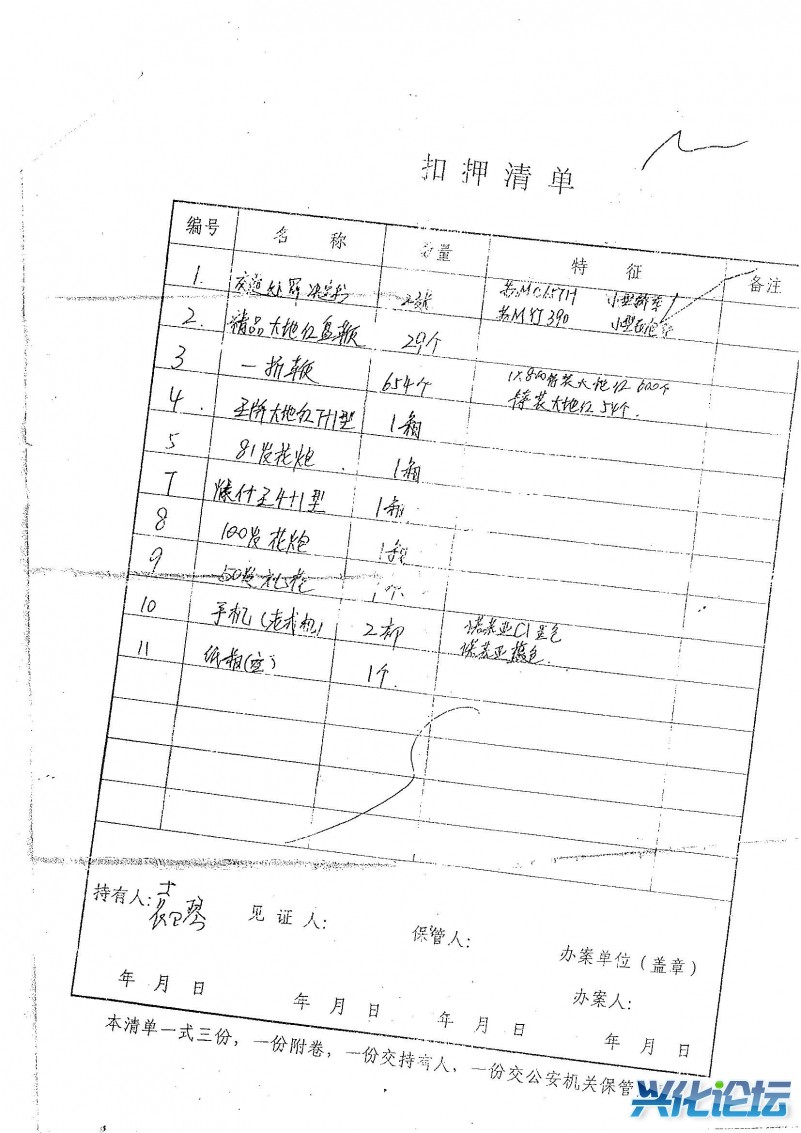 扣押清单
编号 名称 数量 特征 备注
1. 交通处罚决定书 2张 苏MC657H 小型轿车
苏MYJ390 小型
2. 精品大地红盘鞭 29个
3 一折鞭 654个 1×800精装大地红600个
精装大地红54个.
4. 王牌大地红7+1型 1箱
5 81发花炮 1箱
7 爆竹王4+1型 1箱
8 100发花炮 1箱
9 50发 1个
10 手机(老式机) 2部 诺基亚C1黑色
诺基亚 色.
11 纸箱(空) 1个.
持有人: 见证人: 保管人: 办案单位(盖章)
办案人:
年 月 日 年 月 日 年 月 日 年 月 日
本清单一式三份，一份附卷，一份交持有人，一份交公安机关保管
兴化论坛